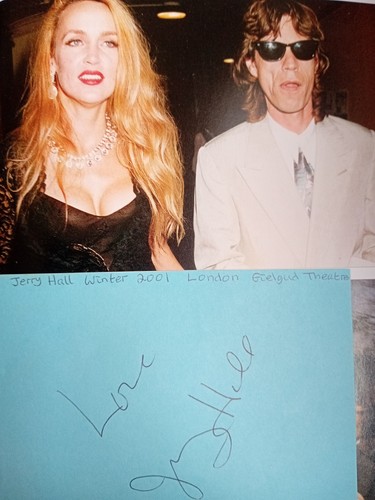 Jerry Hall Winter 2001 London Gielgud Theatre
Love
Jerry Hall